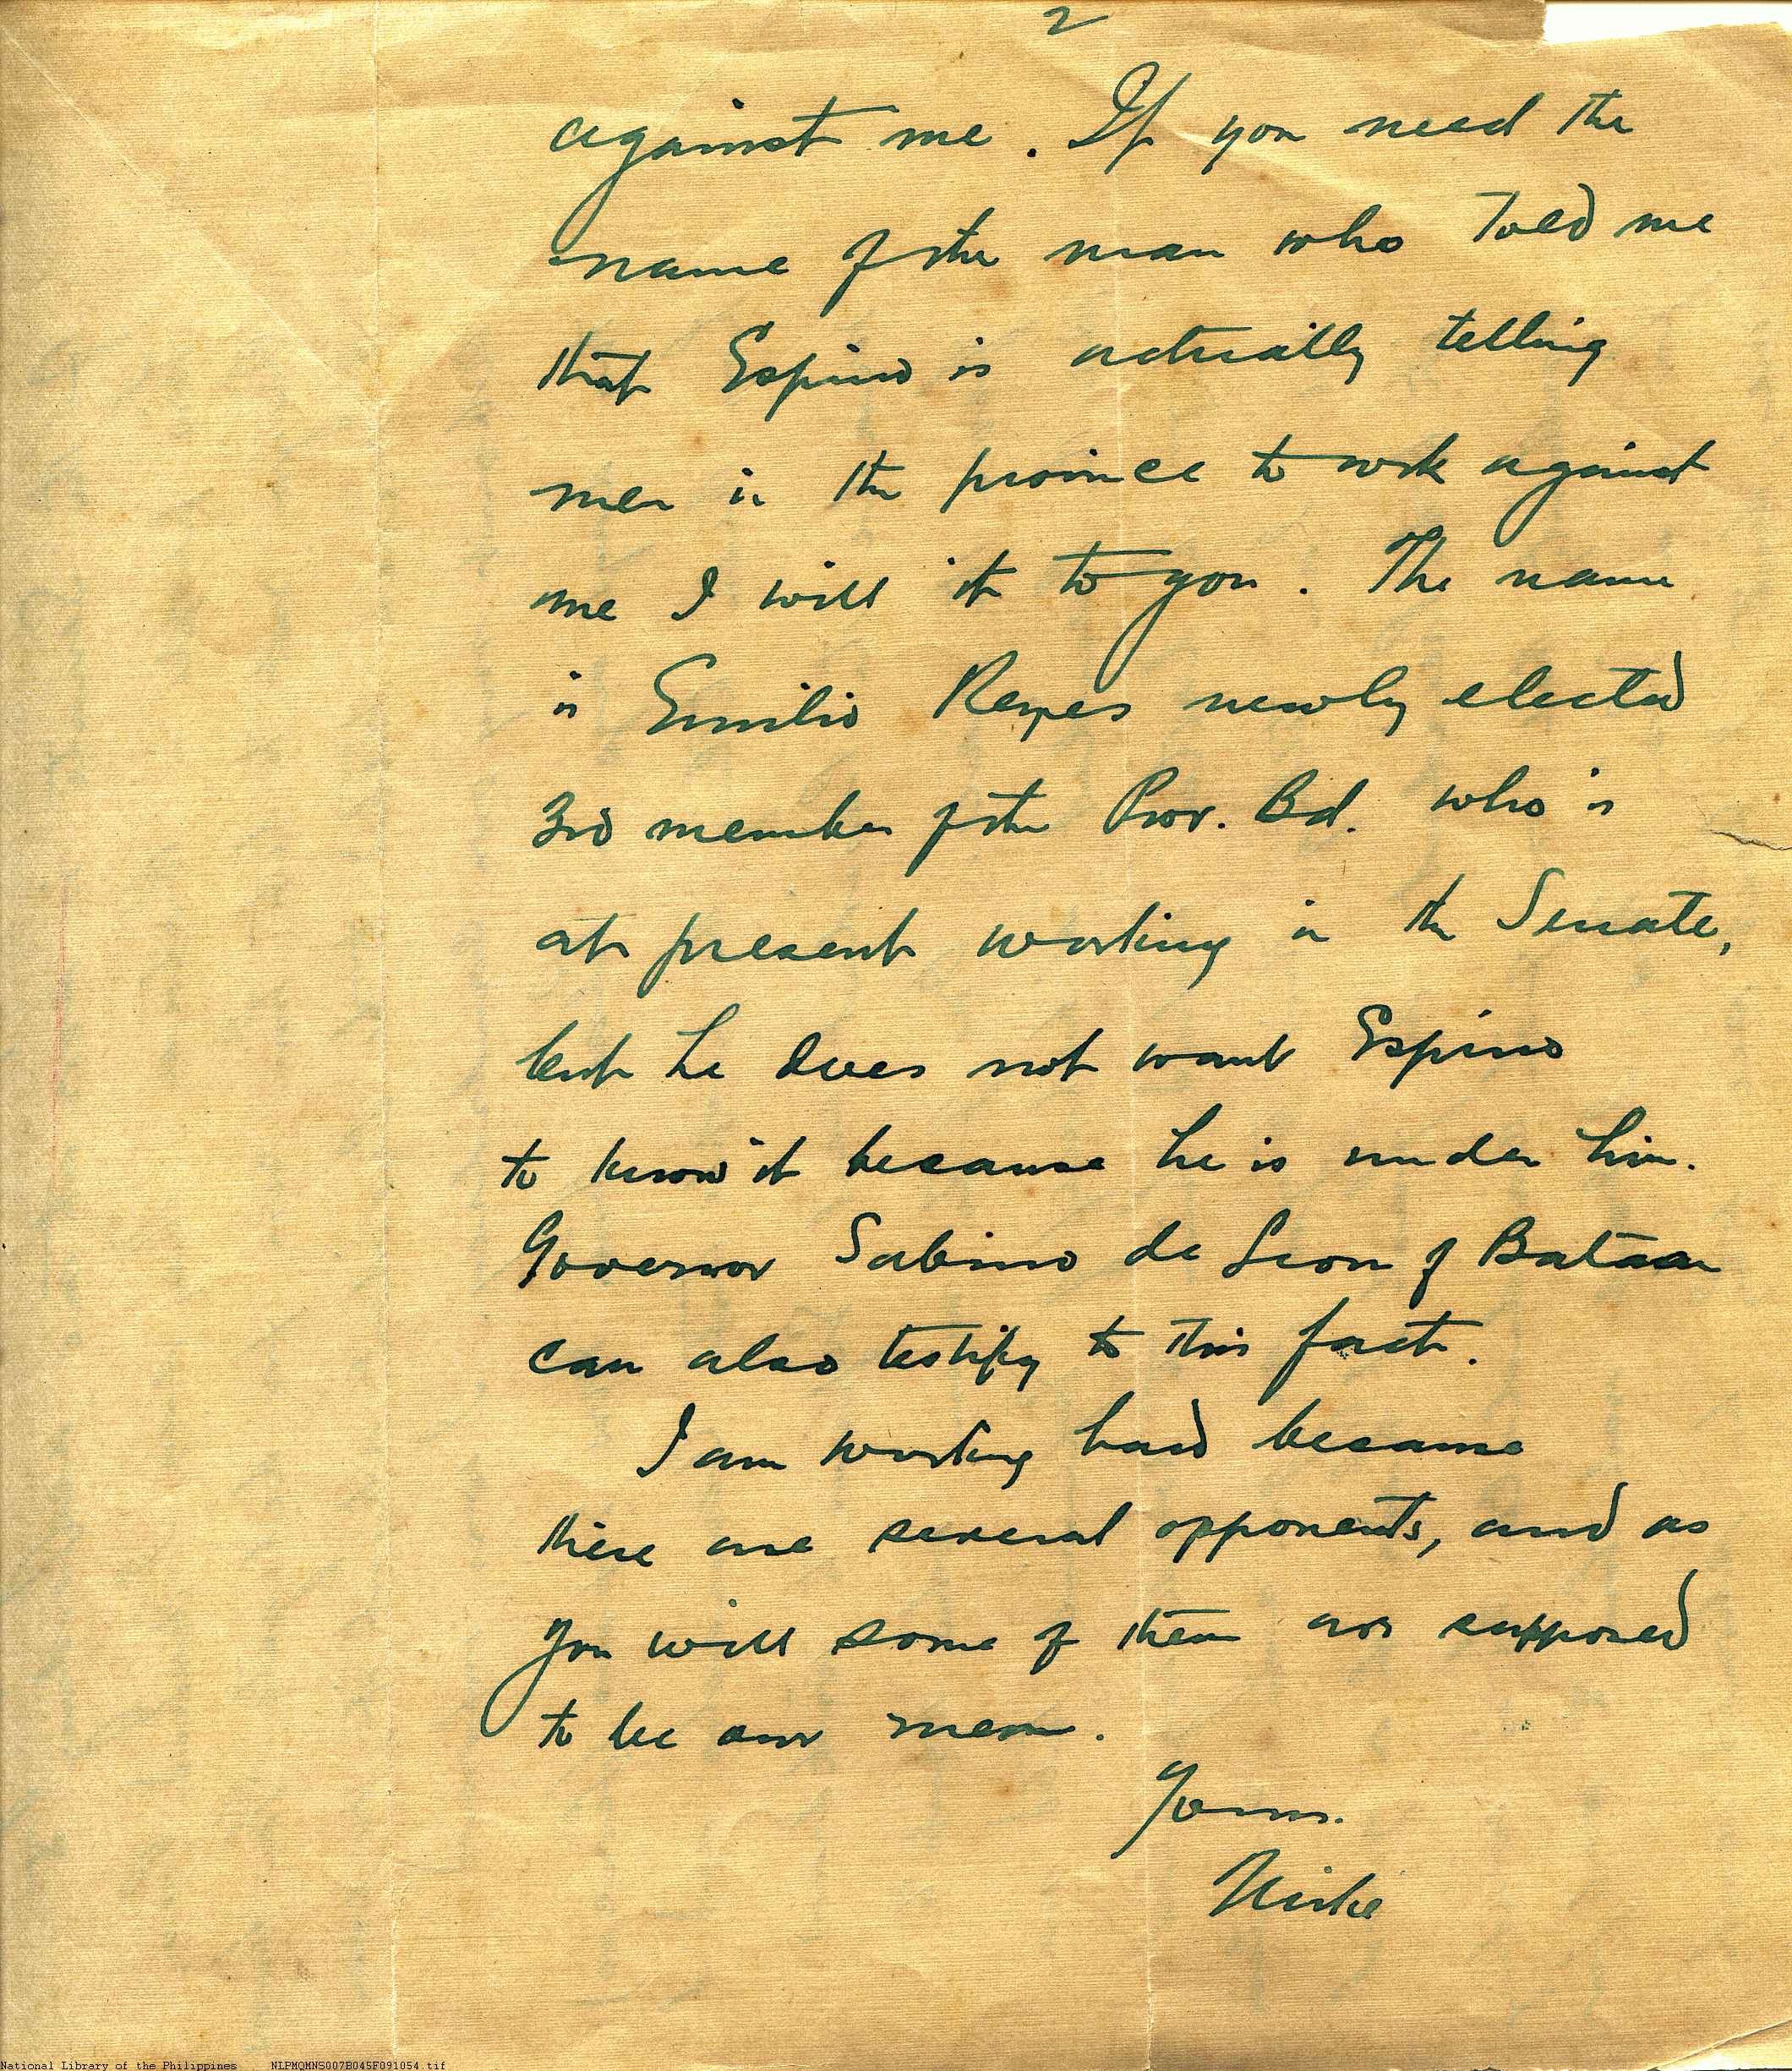 2
against me. If you need the
name of the man who told me
that Espino is actually telling
men in the province to work against
me I will it to you. The name
is Emilio Reyes newly elected
3rd member of the Prov. Bd. who is
at present working in the Senate,
but he does not want Espino
to know it because he is under him.
Governor Sabino de Leon of Bataan
can also testify to this fact.
I am working hard because
there are several opponents, and as
you will some of them are supposed
to be our men.
Yours.
National Library of the Philippines NLPMQMNS007B045F091054.tif